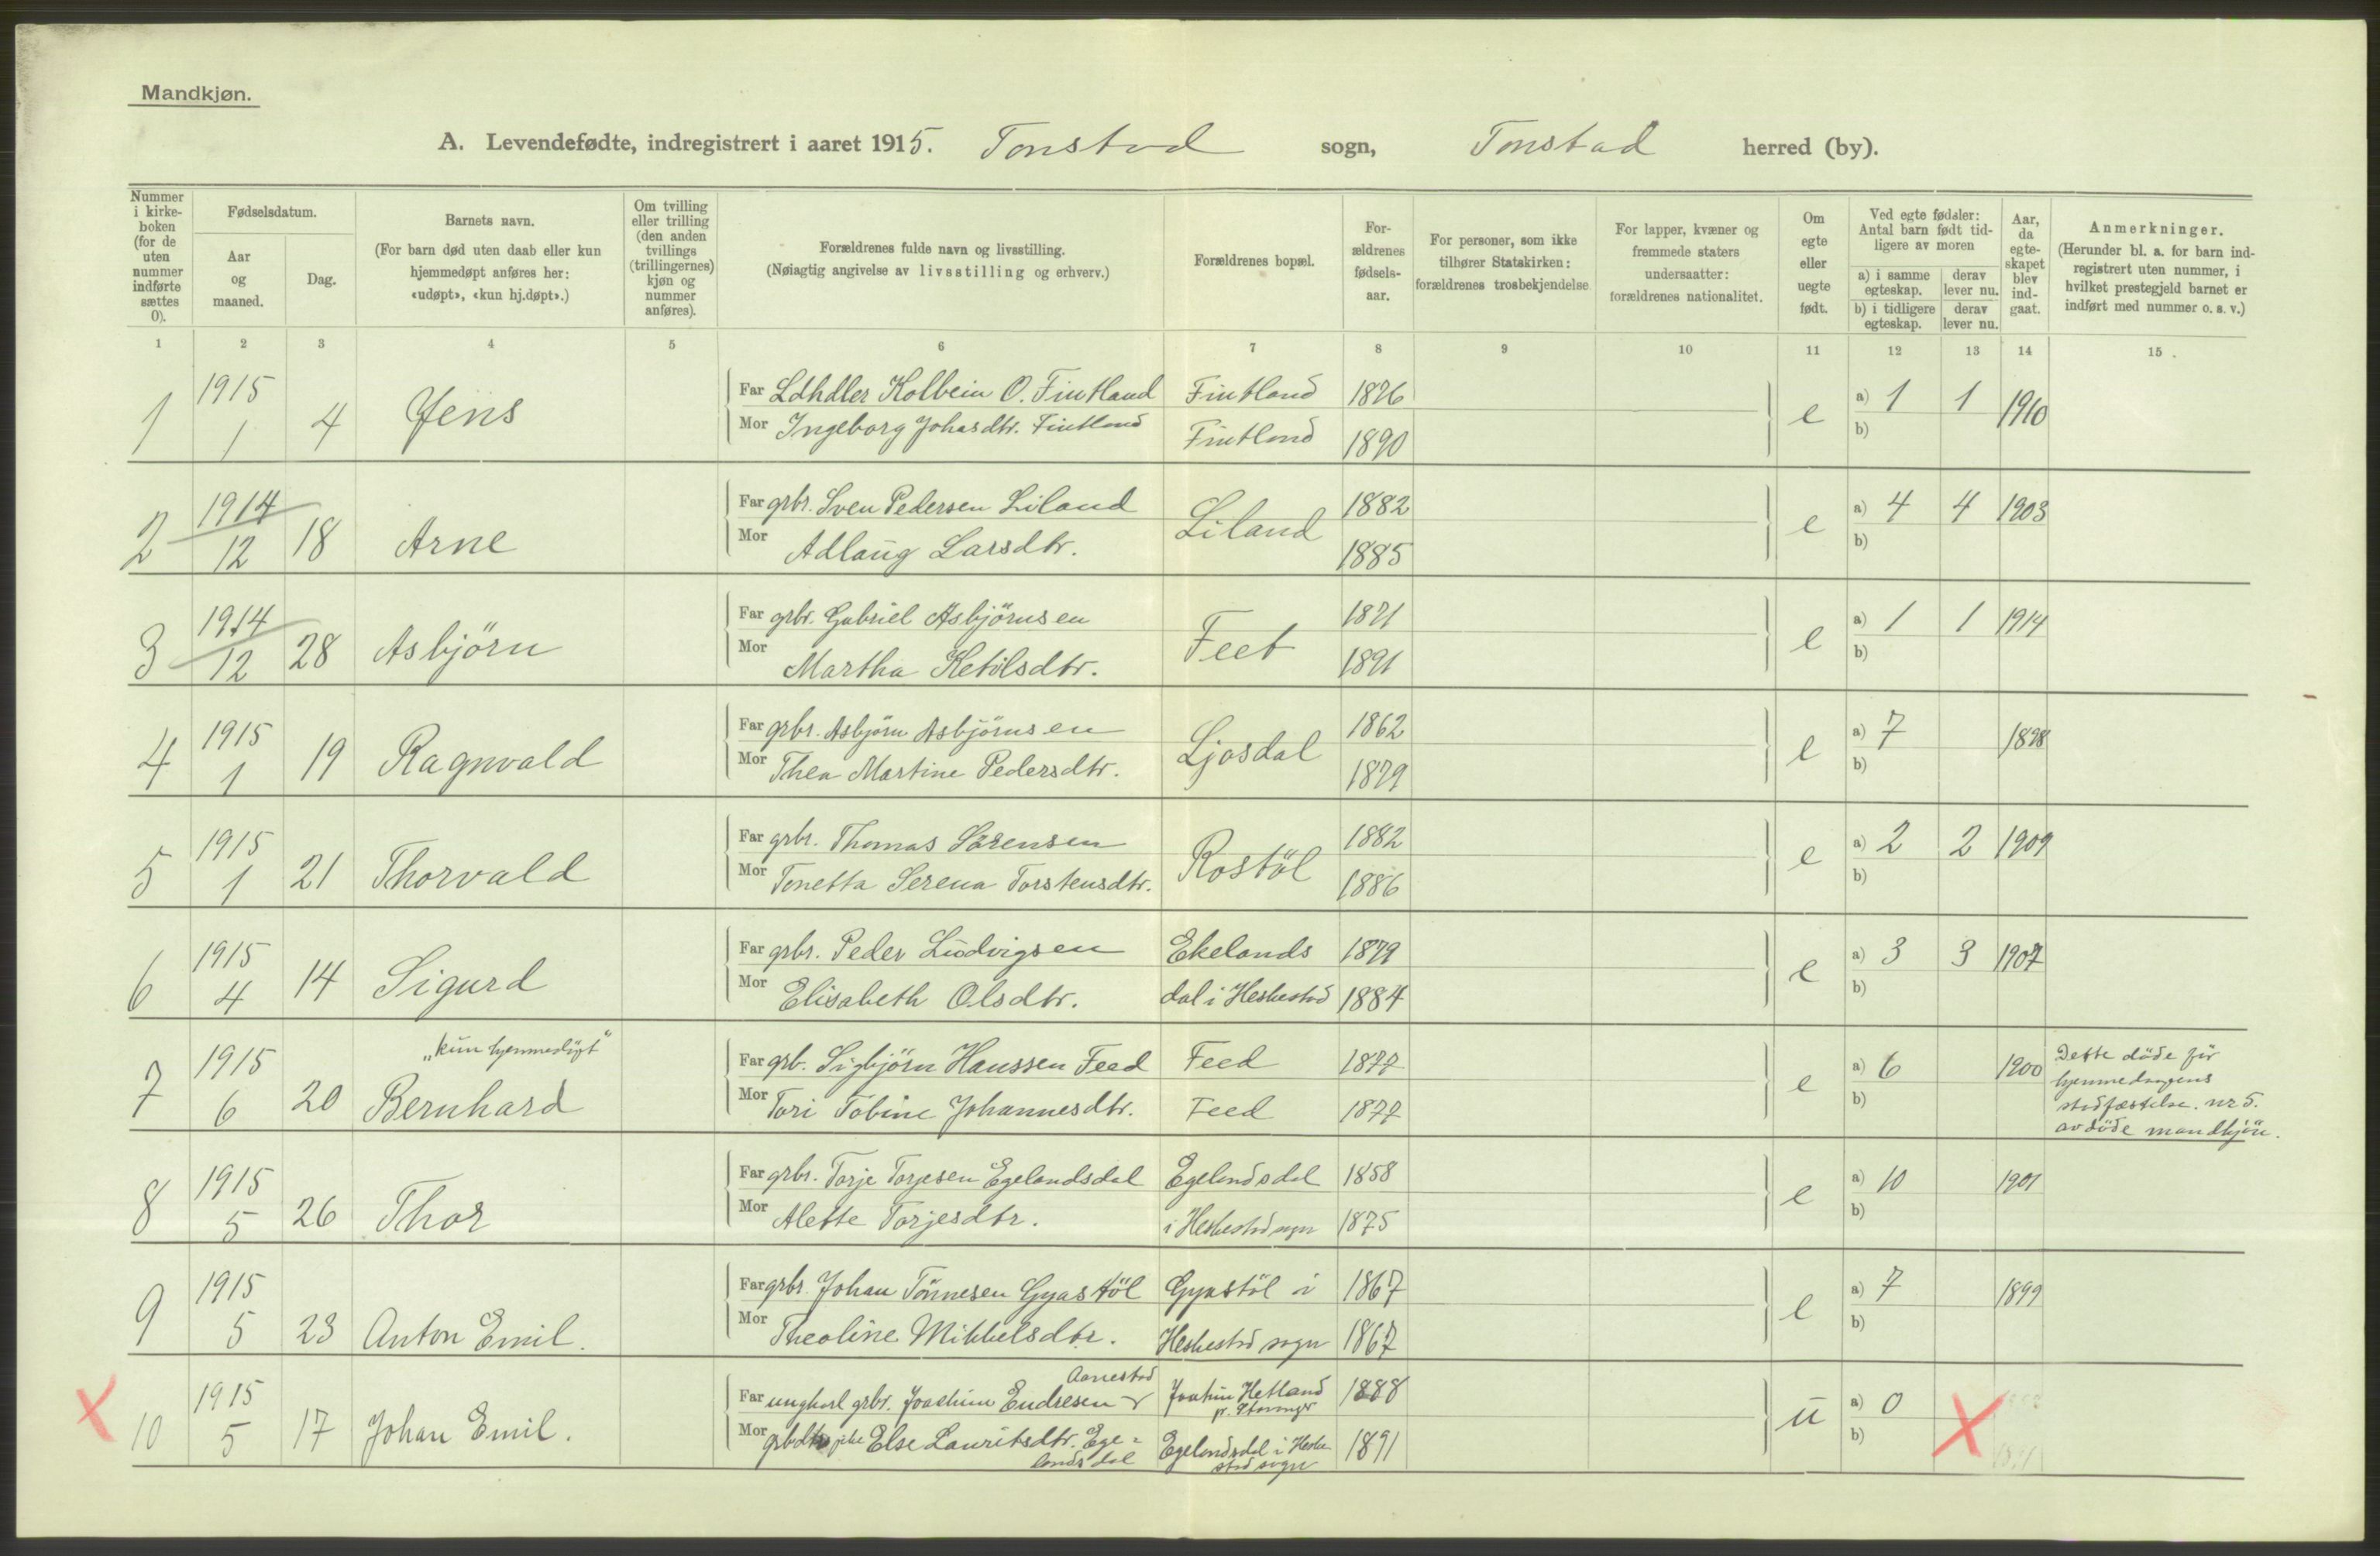 Mandkjøn.
A. Levendefødte, indregistrert i aaret 1915. Tonstad sogn, Tonstad herred (by).
Nummer i kirkeboken (for de uten nummer indførte sættes 0).
Fødselsdatum.
Aar og maaned.
Dag.
Barnets navn.
(For barn død uten daab eller kun hjemmedøpt anføres her: «udøpt», «kun hj.døpt».)
Om tvilling eller trilling (den anden tvillings (trillingernes) kjøn og nummer anføres).
Forældrenes fulde navn og livsstilling.
(Nøiagtig angivelse av livsstilling og erhverv.)
Forældrenes bopæl.
For-ældrenes fødsels-aar.
For personer, som ikke tilhører Statskirken: forældrenes trosbekjendelse.
For lapper, kvæner og fremmede staters undersaatter: forældrenes nationalitet.
Om egte eller uegte født.
Ved egte fødsler: Antal barn født tid-ligere av moren
a) i samme egteskap.
derav lever nu.
b) i tidligere egteskap.
derav lever nu.
Aar, da egte-skapet blev ind-gaat.
Anmerkninger.
(Herunder bl. a. for barn ind-registrert uten nummer, i hvilket prestegjeld barnet er indført med nummer o. s. v.)
1 2 3 4 5 6 7 8 9 10 11 12 13 14 15
1 1915 1 4 Jens
Far Ldhdler Kolbein O. Fintland Fintland 1876 e a) 1 1 1910
Mor Ingeborg Johasdtr. Fintland Fintland 1890 b)
2 1914 12 18 Arne
Far grbr. Sven Pedersen Liland Liland 1882 e a) 4 4 1903
Mor Adlaug Larsdtr. 1885 b)
3 1914 12 28 Asbjörn
Far grbr. Gabriel Asbjörnsen Feet 1871 e a) 1 1 1914
Mor Martha Ketilsdtr. 1891 b)
4 1915 1 19 Ragnvald
Far grbr. Asbjörn Asbjörnsen Ljosdal 1862 e a) 7 1898
Mor Thea Martine Pedersdtr. 1879 b)
5 1915 1 21 Thorvald
Far grbr. Thomas Sörensen Rostöl 1882 e a) 2 2 1909
Mor Tonetta Serena Torstensdtr. 1886 b)
6 1915 4 14 Sigurd
Far grbr. Peder Ludvigsen Ekelands 1879 e a) 3 3 1907
Mor Elisabeth Olsdtr. dal i Heskestad 1884 b)
7 1915 6 20 „kun hjemmedöpt" Bernhard
Far grb. Sigbjörn Hanssen Feed Feed 1877 e a) 6 1900
Mor Tori Tobine Johannesdtr. Feed 1877 b)
Dette döde för
hjemmedaapens
stadfæstelse. nr 5.
av döde mandkjön.
8 1915 5 26 Thor
Far grbr. Torje Torjesen Egelandsdal Egelandsdal 1858 e a) 10 1901
Mor Alette Torjesdtr. i Heskestad sogn 1875 b)
9 1915 5 23 Anton Emil.
Far grbr. Johan Tönnesen Gyastöl Gyastöl i 1867 e a) 7 1899
Mor Theoline Mikkelsdtr. Heskestad sogn 1867 b)
10 1915 5 17 Johan Emil.
Aanestad
Far ungkarl grbr. Joachim Endresen Hetland 1888 u a) 0
pr. Stavanger
Mor Else Lauritsdtr. Ege- Egelandsdal i Heske 1891 b)
landsdal stad sogn